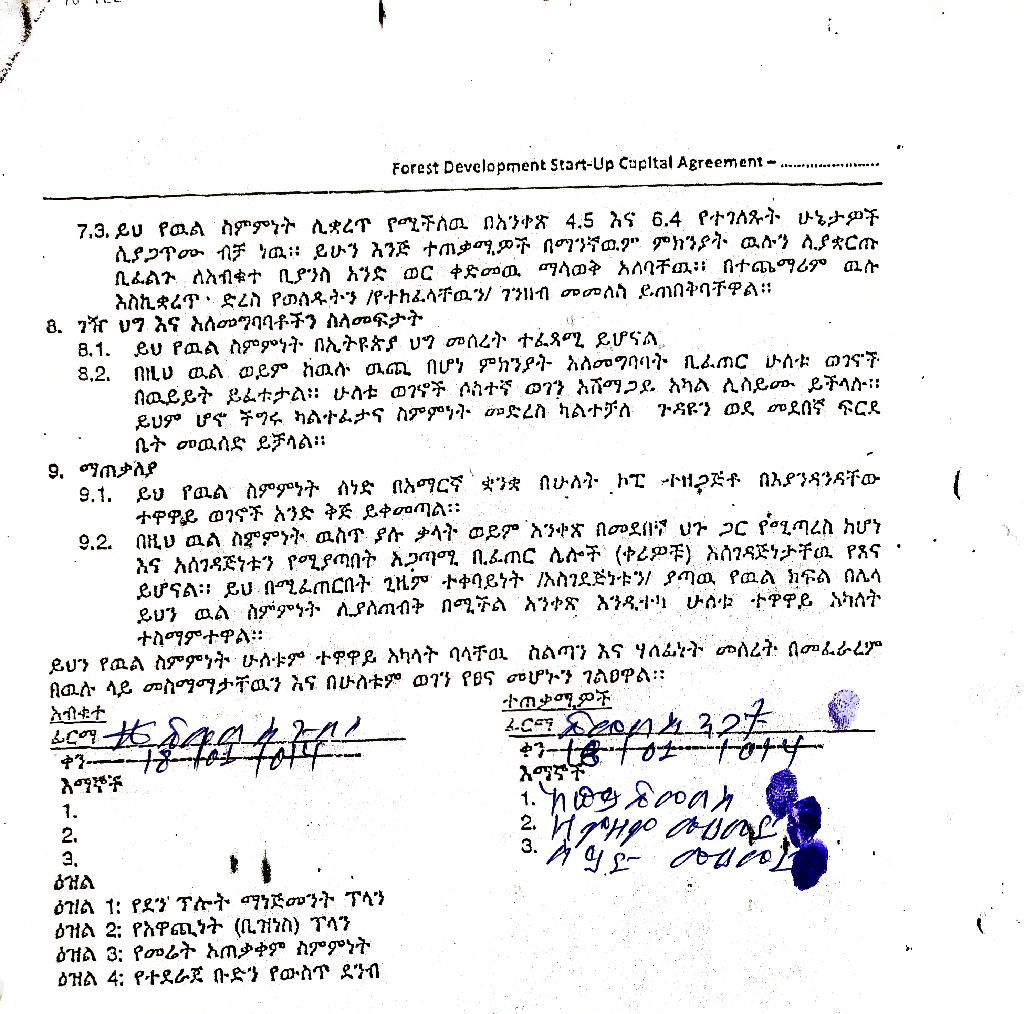 Forest Development Start-Up Capital Agreement – ........................
7.3. ይህ የዉል ስምምነት ሊቋረጥ የሚችለዉ በአንቀጽ 4.5 እና 6.4 የተገለጹት ሁኔታዎች
ሲያጋጥሙ ብቻ ነዉ። ይሁን እንጅ ተጠቃሚዎች በማንኛዉም ምክንያት ዉሉን ሊያቋርጡ
ቢፈልጉ ለአብቁተ ቢያንስ አንድ ወር ቀድመዉ ማሳወቅ አለባቸዉ። በተጨማሪም ዉሉ
እስኪቋረጥ ድረስ የወሰዱትን /የተከፈላቸዉን/ ገንዘብ መመለስ ይጠበቅባቸዋል።
8. ገዥ ህግ እና አለመግባባቶችን ስለመፍታት
8.1. ይህ የዉል ስምምነት በኢትዮጵያ ህግ መሰረት ተፈጻሚ ይሆናል
8.2. በዚህ ዉል ወይም ከዉሉ ዉጪ በሆነ ምክንያት አለመግባባት ቢፈጠር ሁለቱ ወገኖች
በዉይይት ይፈቱታል። ሁለቱ ወገኖች ሶስተኛ ወገን አሸማጋይ አካል ሊሰይሙ ይችላሉ።
ይህም ሆኖ ችግሩ ካልተፈታና ስምምነት መድረስ ካልተቻለ ጉዳዩን ወደ መደበኛ ፍርደ
ቤት መዉሰድ ይቻላል።
9. ማጠቃለያ
9.1. ይህ የዉል ስምምነት ሰነድ በአማርኛ ቋንቋ በሁለት ኮፒ ተዘጋጅቶ በእያንዳንዳቸው
ተዋዋይ ወገኖች አንድ ቅጅ ይቀመጣል።
9.2. በዚህ ዉል ስምምነት ዉስጥ ያሉ ቃላት ወይም አንቀጽ በመደበኛ ህጉ ጋር የሚጣረስ ከሆነ
እና አስገዳጅነቱን የሚያጣበት አጋጣሚ ቢፈጠር ሌሎች (ቀሪዎቹ) አስገዳጅነታቸዉ የጸና
ይሆናል። ይህ በሚፈጠርበት ጊዜም ተቀባይነት /አስገደጅነቱን/ ያጣዉ የዉል ክፍል በሌላ
ይህን ዉል ስምምነት ሊያስጠብቅ በሚችል አንቀጽ እንዲተካ ሁለቱ ተዋዋይ አካለት
ተስማምተዋል።
ይህን የዉል ስምምነት ሁለቱም ተዋዋይ አካላት ባላቸዉ ስልጣን እና ሃላፊነት መሰረት በመፈራረም
በዉሉ ላይ መስማማታቸዉን እና በሁለቱም ወገን የፀና መሆኑን ገልፀዋል።
አብቁተ
ፊርማ
ቀን 18 / 01 / 014
እማኞች
1.
2.
3.
ተጠቃሚዎች
ፊርማ
ቀን 18 / 01 / 014
እማኞች
1.
2.
3.
ዕዝል
ዕዝል 1: የደን ፕሎት ማነጅመንት ፕላን
ዕዝል 2: የአዋጪነት (ቢዝነስ) ፕላን
ዕዝል 3: የመሬት አጠቃቀም ስምምነት
ዕዝል 4: የተደራጀ ቡድን የውስጥ ደንብ